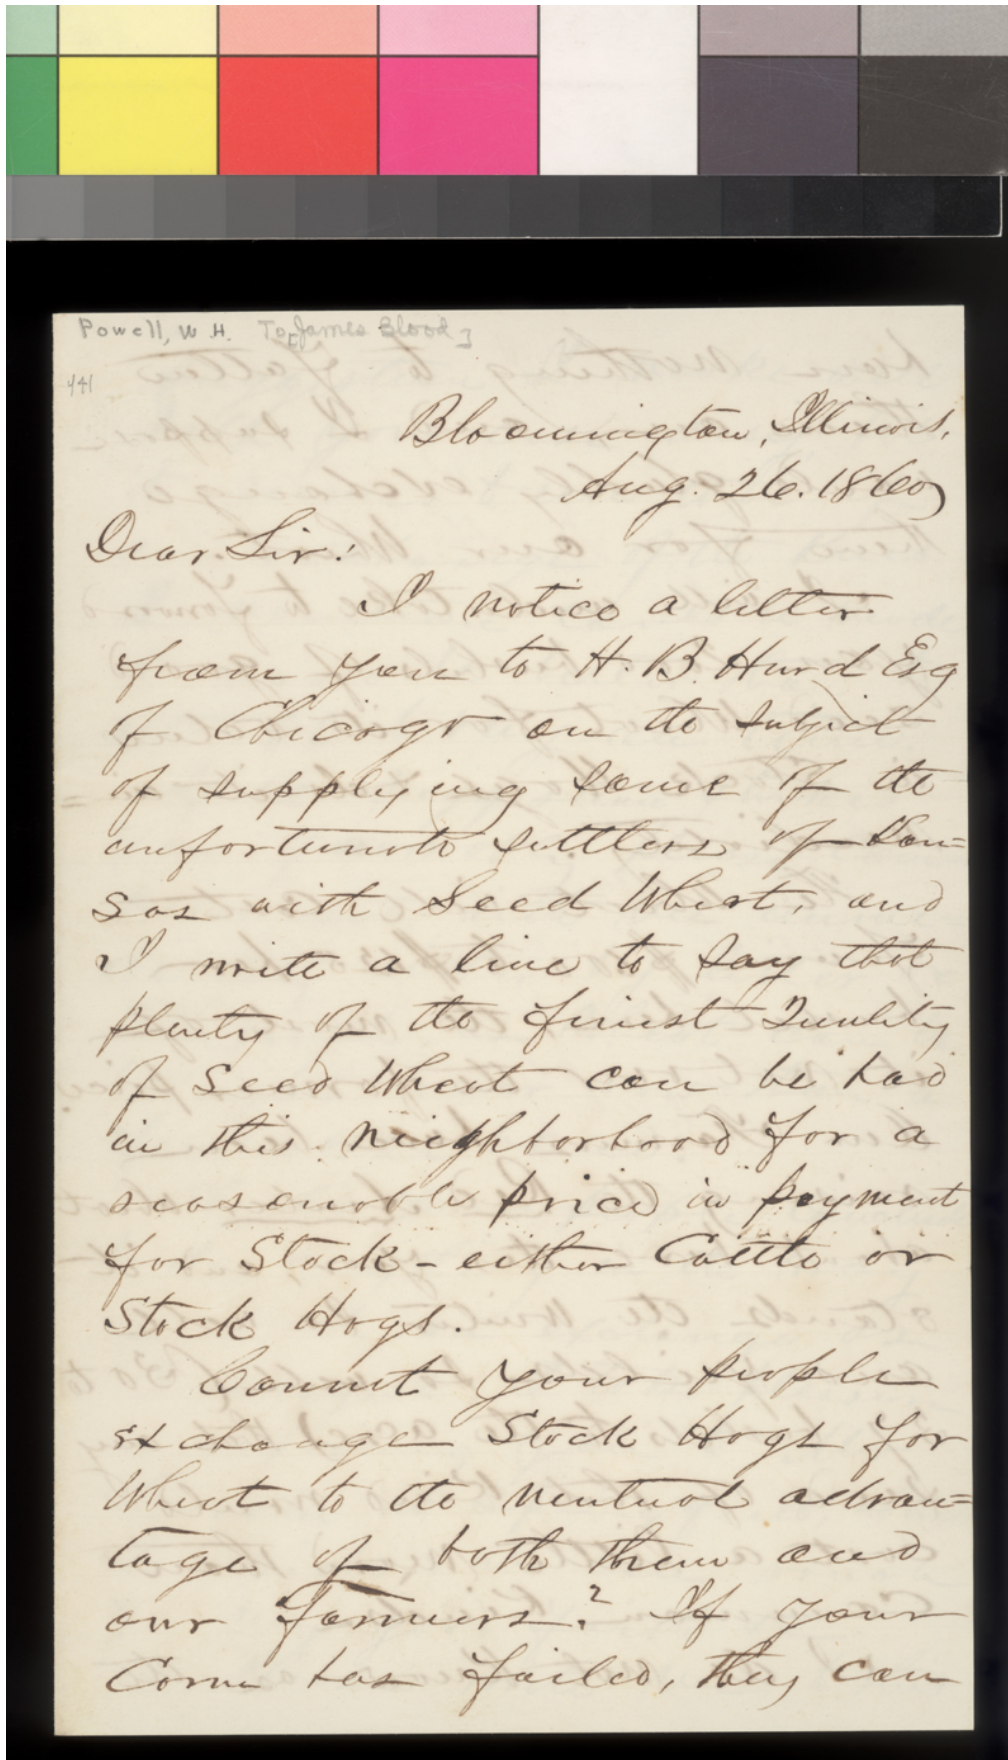 Powell, W. H. To [James Blood]
441
Bloomington, Illinois,
Aug. 26. 1860
Dear Sir:
I notice a letter
from you to H. B. Hurd Esq
of Chicago on the subject
of supplying some of the
unfortunate settlers of Kan=
sas with Seed Wheat, and
I write a line to say that
plenty of the finest Quality
of Seed Wheat can be had
in this neighborhood for a
reasonable price in payment
for Stock - either Cattle or
Stock Hogs.
Cannot your people
exchange Stock Hogs for
Wheat to the mutual advan=
tage of both them and
our farmers? If your
Corn has failed, they can